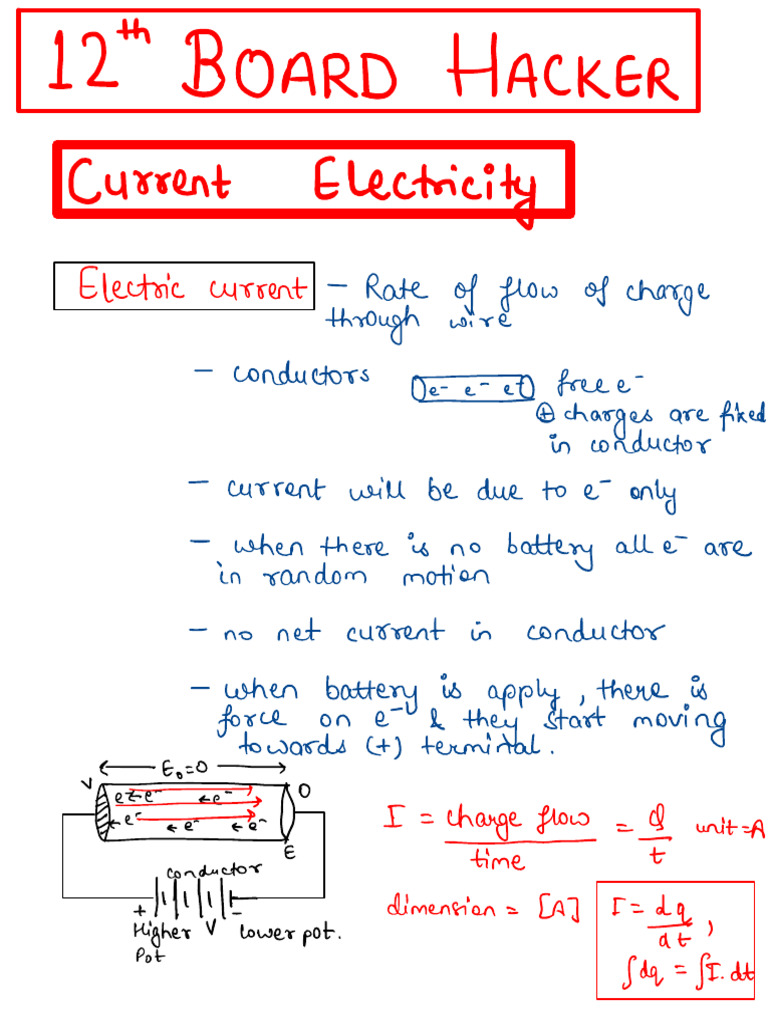 12th BOARD HACKER
Current Electricity
Electric current – Rate of flow of charge
through wire
– conductors e- e- e- free e-
⊕ charges are fixed
in conductor
– current will be due to e- only
– when there is no battery all e- are
in random motion
– no net current in conductor
– when battery is apply, there is
force on e- & they start moving
towards (+) terminal.
E₀=0
V 0
e- e- e-
e- e- e-
E
conductor
+ –
Higher V lower pot.
Pot
I = charge flow / time = Q / t unit=A
dimension = [A]
I = dq / dt ,
∫dq = ∫I.dt